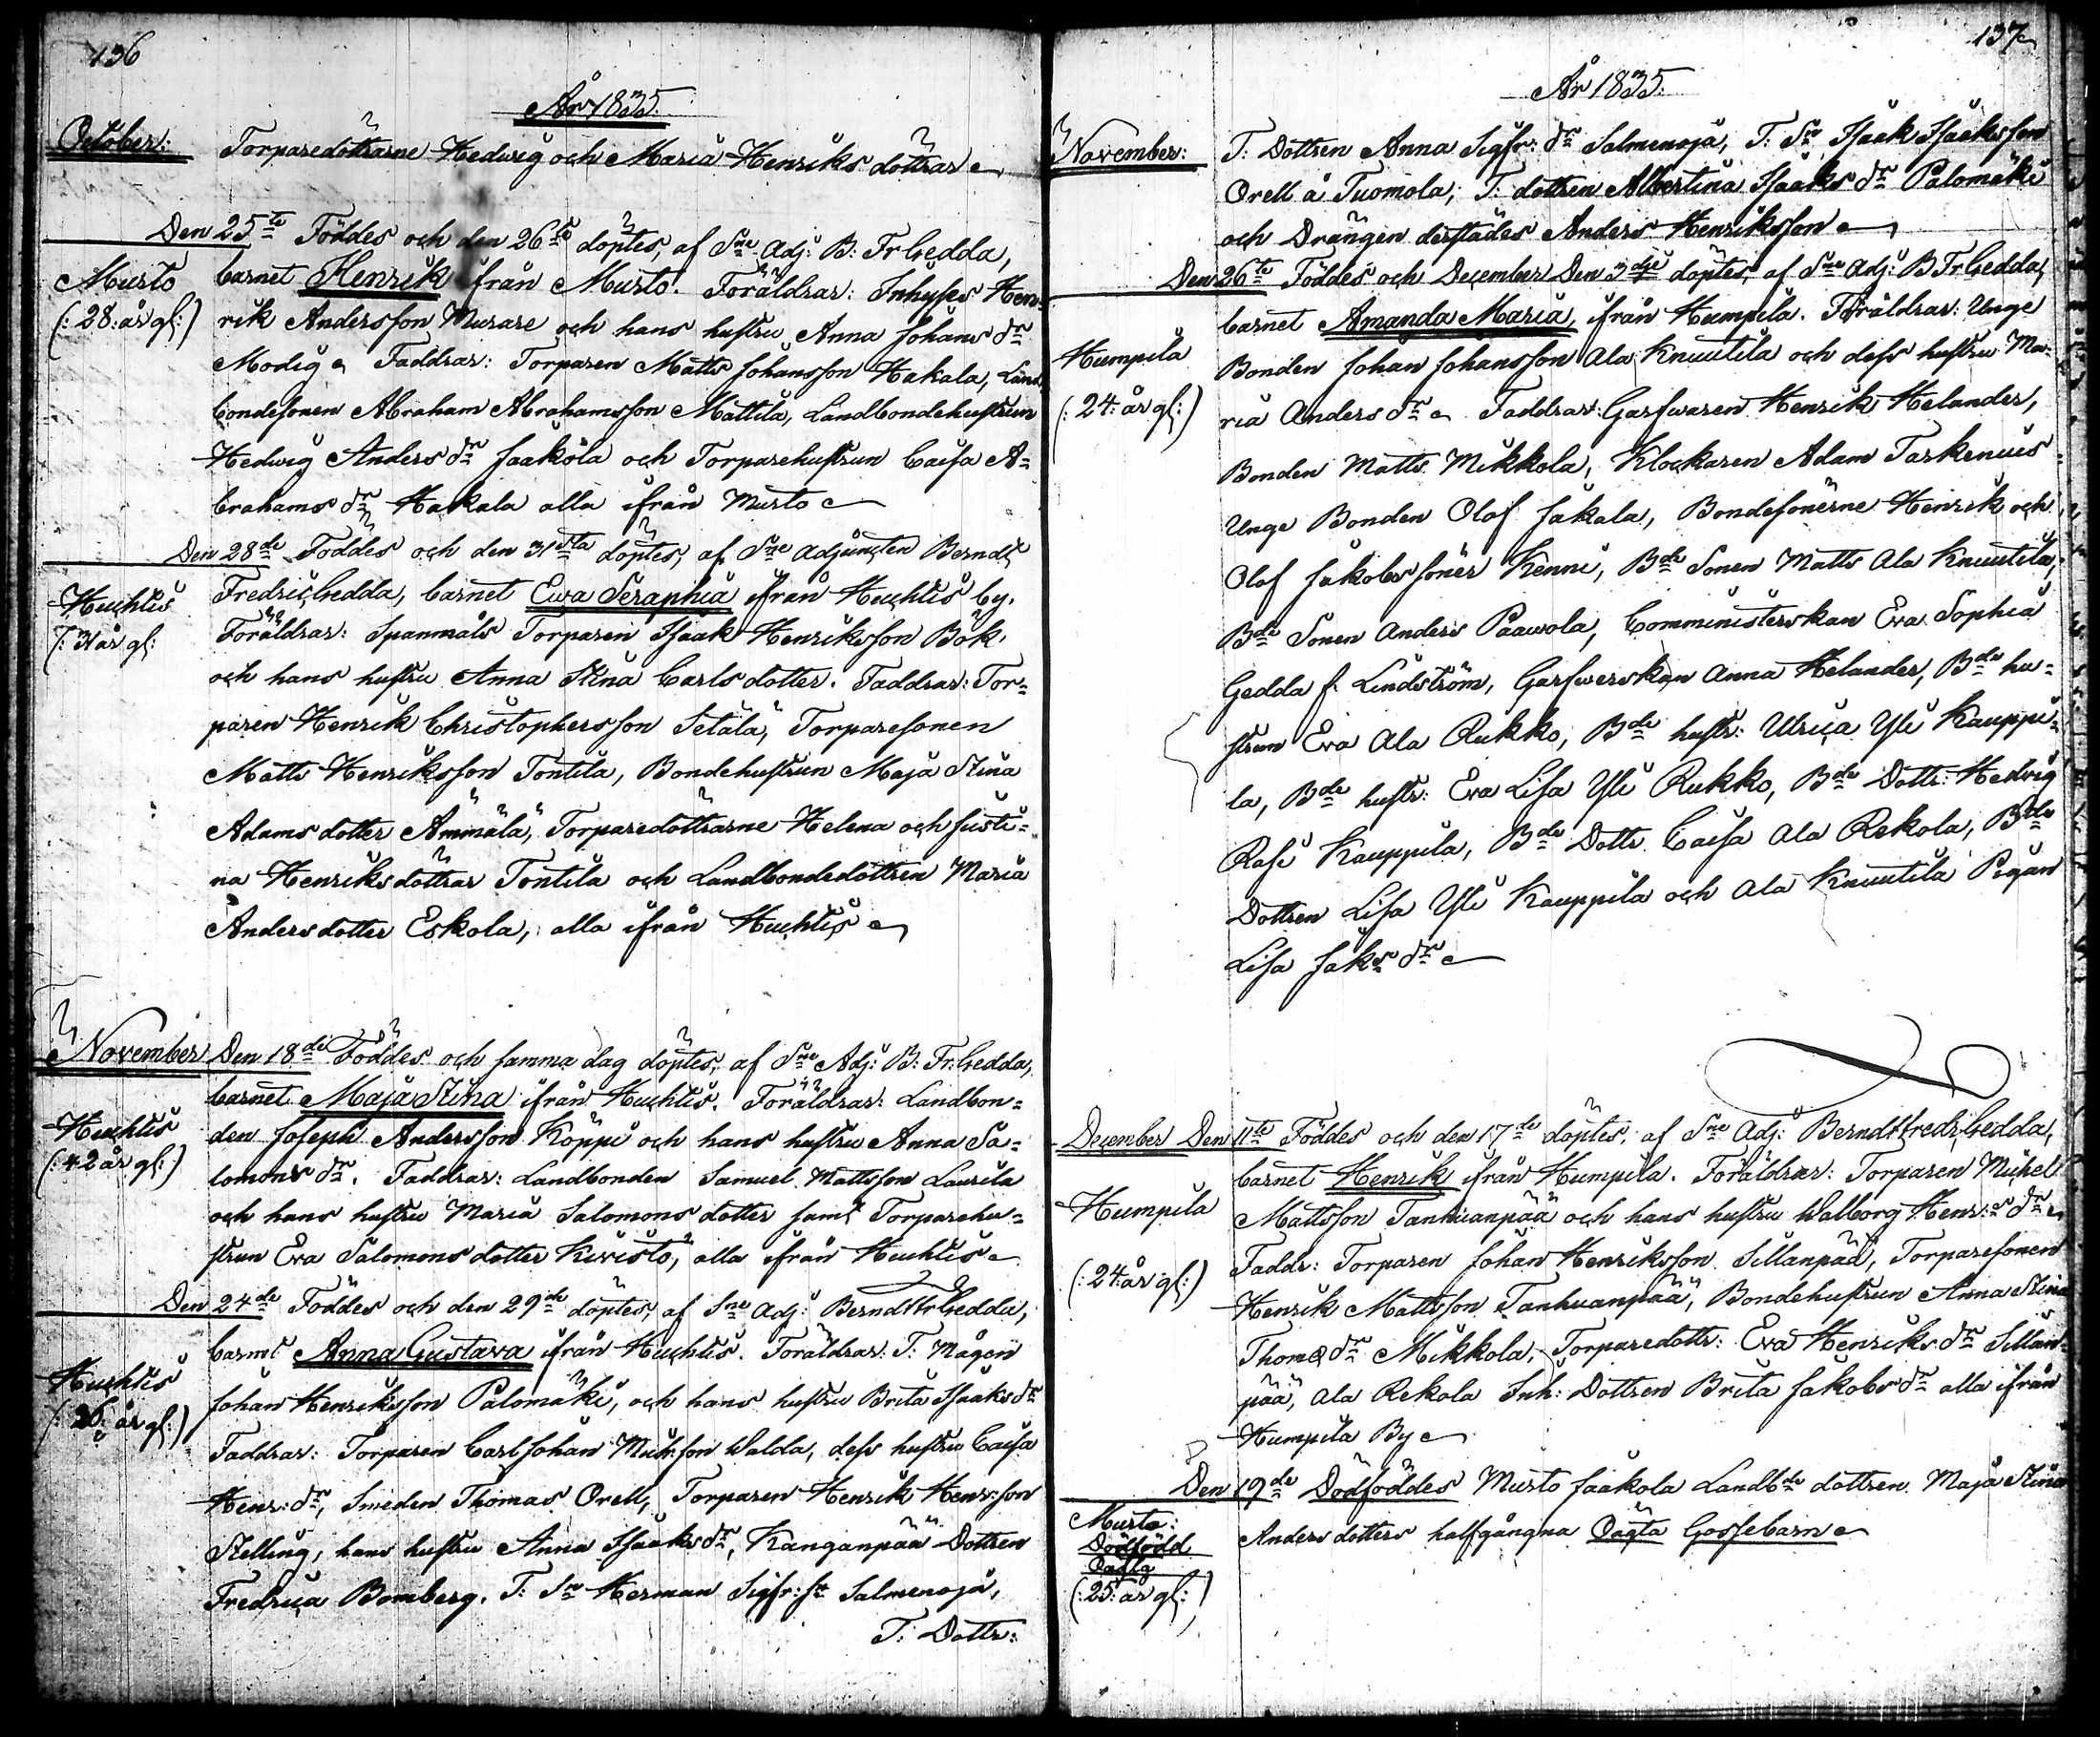 136
År 1835.
October:
Torparedöttrarne Hedwig och Maria Henriks döttrar
Den 25te Föddes och den 26te döptes, af Sne Adj: B: Fr Gedda,
Musto
barnet Henrik från Musto. Föräldrar: Inhyses Hen-
(: 28: år gl:)
rik Andersson Murare och hans hustru Anna Johans dr
Modig Faddrar: Torparen Matts Johansson Hakala, Land
bondesonen Abraham Abrahamsson Mattila, Landbondehustrun
Hedwig Anders dr Jaakola och Torparehustrun Caisa A-
brahams dr Hakala alla ifrån Musto
Den 28de Föddes och den 31sta döptes, af Sne Adjuncten Berndt
Huchtis
Fredric Gedda, barnet Ewa Seraphia ifrån Huchtis by.
(: 31 år gl:
Föräldrar: Spanmåls Torparen Isaak Henriksson Bök.
och hans hustru Anna Stina Carls dotter. Faddrar: Tor-
paren Henrik Christophersson Setälä, Torparesonen
Matts Henriksson Tontila, Bondehustrun Maja Stina
Adams dotter Ämmälä, Torparedöttrarne Helena och Justi-
na Henriksdöttrar Tontila och Landbondedottren Maria
Andersdotter Eskola, alla ifrån Huchtis
November
Den 18de Föddes och samma dag döptes, af Sne Adj: B: Fr: Gedda,
barnet Maja Stina ifrån Huchtis. Föräldrar: Landbon-
Huchtis
den Joseph Andersson Köppi och hans hustru Anna Sa-
(: 42 år gl:)
lomons dr. Faddrar: Landbonden Samuel Mattsson Laurila
och hans hustru Maria Salomons dotter samt Torparehu-
strun Eva Salomons dotter Kivistö, alla ifrån Huchtis
Den 24de Föddes och den 29de döptes, af Sne Adj: Berndt Fr Gedda,
barnet Anna Gustava ifrån Huchtis. Föräldrar: T: Mågen
Huchtis
Johan Henriksson Palomäki, och hans hustru Brita Isaaks dr
(: 26: år gl:)
Faddrar: Torparen Carl Johan Mich:son Walda, dess hustru Caisa
Henr: dr, Smeden Thomas Orell, Torparen Henrik Henr:son
Stelling, hans hustru Anna Isaaks dr, Kanganpää Dottren
Fredrica Bomberg. T: Sn Herman Sigfr: sn Salmenoja,
T: Dottr:
137
År 1835.
November:
T: Dottren Anna Sigfr: dr Salmenoja, T: Sn Isaak Isaaksson
Orell å Tuomola, T: dottren Albertina Isaaks dr Palomäki
och Drängen derstädes Anders Henriksson
Den 26te Föddes och December Den 3dje döptes, af Sne Adj: B Fr: Gedda,
barnet Amanda Maria, ifrån Humpila. Föräldrar: Unge
Humpila
Bonden Johan Johansson Ala Knuutila och dess hustru Ma-
(: 24: år gl:)
ria Anders dr Faddrar: Garfwaren Henrik Helander,
Bonden Matts Mikkola, Klockaren Adam Taskenius
Unge Bonden Olof Jakala, Bondesönerne Henrik och
Olof Jakobs söner Kenni, Bde Sonen Matts Ala Knuutila,
Bde Sonen Anders Paawola, Comministerskan Eva Sophia
Gedda f. Lindström, Garfwerskan Anna Helander, Bde hu-
strun Eva Ala Rukko, Bde hustr: Ulrica Yli Kauppi-
la, Bde hustr: Eva Lisa Yli Rukko, Bde Dottr: Hedvig
Rasi Kauppila, Bde Dottr. Caisa Ala Rekola, Bde
Dottren Lisa Yli Kauppila och Ala Knuutila Pigan
Lisa Jaks dr
December Den 11te Föddes och den 17de döptes, af Sne Adj: Berndt Fredr: Gedda,
barnet Henrik ifrån Humpila. Föräldrar: Torparen Michel
Humpila
Mattsson Tanhuanpää och hans hustru Walborg Henr:s dr
(: 24: år gl:)
Faddr: Torparen Johan Henriksson Sillanpää, Torparesonen
Henrik Mattsson Tanhuanpää, Bondehustrun Anna Stina
Thomæ dr Mikkola, Torparedottr: Eva Henriks dr Sillan-
pää, Ala Rekola Inh: Dottren Brita Jakobs dr alla ifrån
Humpila By
Den 19de Dödföddes Musto Jaakola Landbde dottren Maja Stina
Musto:
Anders dotters halfgångna Oägta Gossebarn
Dödfödd
Oägta
(: 25: år gl:)